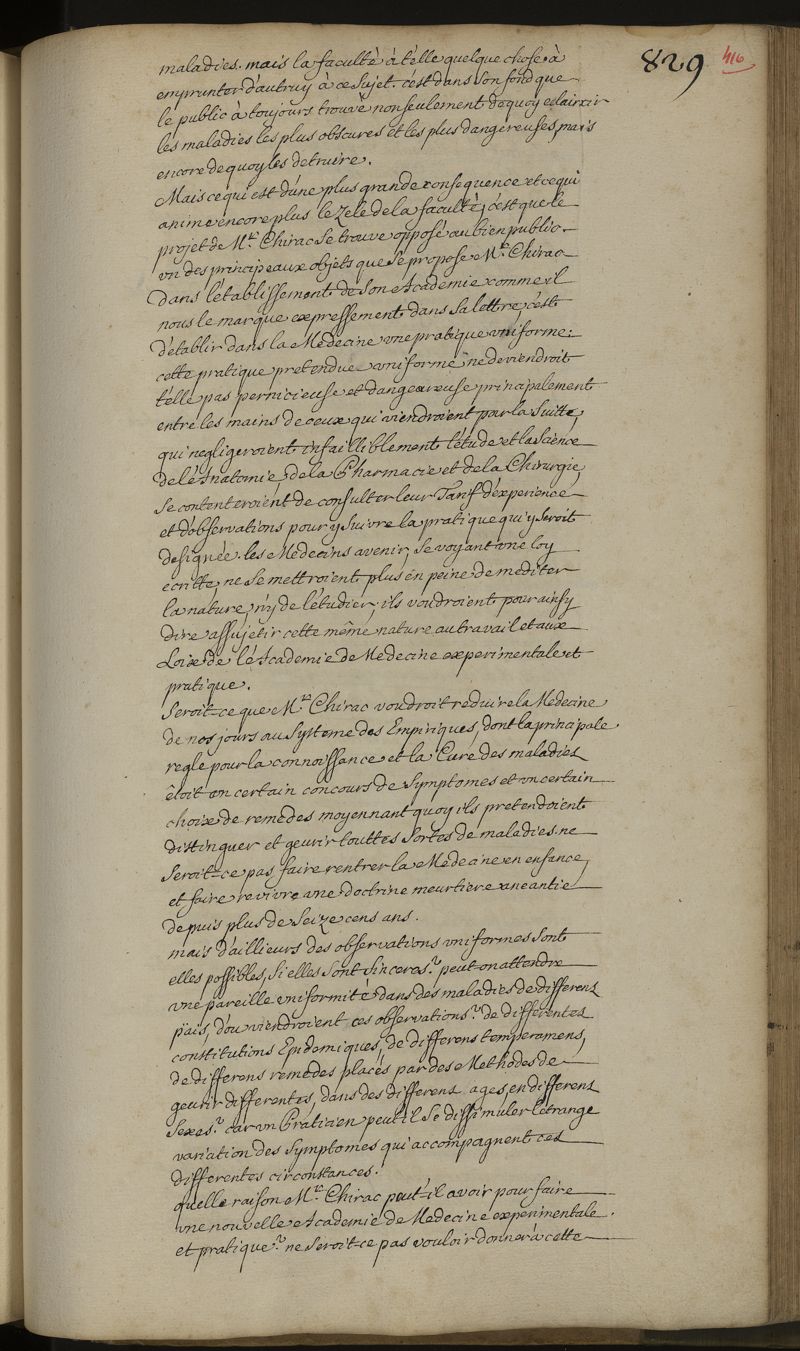 829 416
maladies. mais la faculté à t'elle quelque chose à
emprunter d'autruy à ce sujet. c'est dans son fond que
le public à toujours trouvé nonseulement de quoy eclaircir
les maladies les plus obscures et les plus dangereuses, mais
encore de quoy les detruire.
Mais ce qui est d'une plus grande consequence et ce qui
anime encore plus le Zele de la faculté, c'est que le
projet de Mr. Chirac se trouve opposé au bien public.
vn des principeaux objets que se propose Mr. Chirac
dans l'etablissement de son Academie comme il
nous le marque expressement dans sa lettre, c'est
d'etablir dans la Medecine vne pratique vniforme:
cette pratique pretendue vniforme ne deviendroit
t'elle pas pernicieuse et dangereuse principalement
entre les mains de ceux qui viendroient par la suitte,
qui negligeroient infailliblement l'étude et la sciènce
de lé Anatomie, de la Pharmacie et de la Chirurgie,
se contenteroient de consulter leur Tarif d'éxperience
et d'observations pour y suivre la pratique qui y seroit
designée. les Medecins avenir, se voyant vne loy
ecritte, ne se mettroient plus en peine de mediter
la nature, n'y de l'étudier, ils voudroient pour ainsy
dire assujetir cette même nature au travail et aux
Loix de lé Academie de Medecine experimentale et
pratique.
Seroit-ce que Mr. Chirac voudroit reduire la Medecine
de nos jours au Systeme des Empiriques, dont la principale
regle pour la connoissance et la Cure des maladies
étoit vn certain concours de Symptomes et vn certain
choix de remedes moyennant quoy ils pretendoient
distinguer et geurir touttes sortes de maladies. ne
seroit-ce pas faire rentrer la Medecine en enfance,
et faire revivre vne doctrine meurtiere aneantie
depuis plus de seize cens ans.
mais d'aillieurs des observations vniformes sont
elles possibles, si elles sont sinceres? peut on attendre
vne pareille vniformité dans des maladies de differens
païs, d'ou viendroient ces observations? de differentes
constitutions Epidemiques, de differens temperamens,
de differens remedes placés par des Methodes de
geurir differentes, dans des differens ages, en differens
sexes? car vn Praticien peut il se dissimuler l'etrange
variation des symptomes qui accompagnent ces
differentes circonstances.
quelle raison Mr. Chirac peut-il avoir pour faire
vne nouvelle Academie de Medecine experimentale
et pratique? ne seroit-ce pas vouloir donner à cette